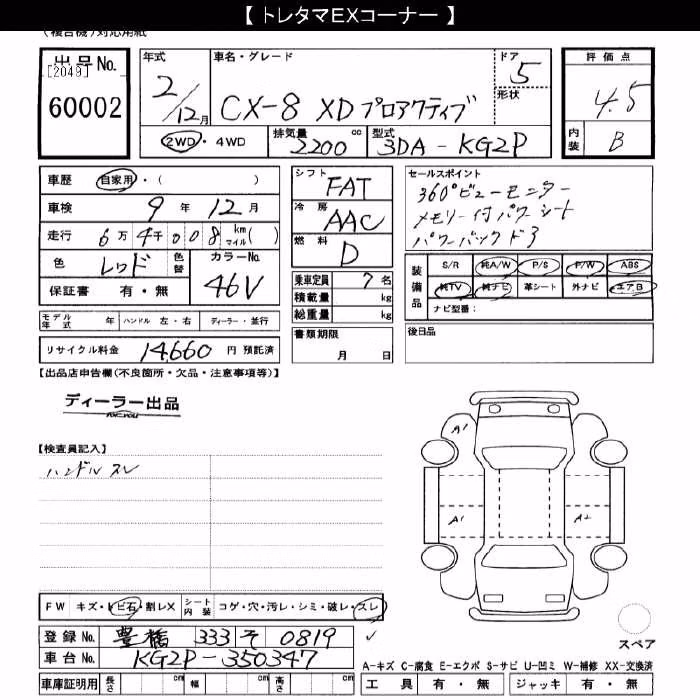 【 トレタマEXコーナー 】
(複合機)対応用紙
出品No.
[2049]
60002
年式
2/12月
車名・グレード
CX-8 XD プロアクティブ
ドア 5
形状
2WD・4WD
排気量 2200 cc
型式 3DA-KG2P
評価点 4.5
内装 B
車歴 自家用・( )
車検 9年 12月
走行 6万 4千 008 km マイル( )
色 レッド 色替
カラーNo. 46V
保証書 有・無
モデル年式 年 ハンドル 左・右 ディーラー・並行
リサイクル料金 14,660 円 預託済
シフト FAT
冷房 AAC
燃料 D
乗車定員 7 名
積載量 kg
総重量 kg
書類期限
月 日
セールスポイント
360°ビューモニター
メモリー付パワーシート
パワーバックドア
装備品 S/R 純A/W P/S P/W ABS
純TV 純ナビ 革シート 外ナビ エアB
ナビ型番:
後日品
【出品店申告欄(不良箇所・欠品・注意事項等)】
ディーラー出品
【検査員記入】
ハンドル スレ
A1
A1
A2
FW キズ・トビ石・割レX シート内装 コゲ・穴・汚レ・シミ・破レ・スレ
スペア
登録No. 豊橋 333 そ 0819
車台No. KG2P-350347
A-キズ C-腐食 E-エクボ S-サビ U-凹ミ W-補修 XX-交換済
車庫証明用 長さ cm 幅 cm 高さ cm
工具 有・無 ジャッキ 有・無